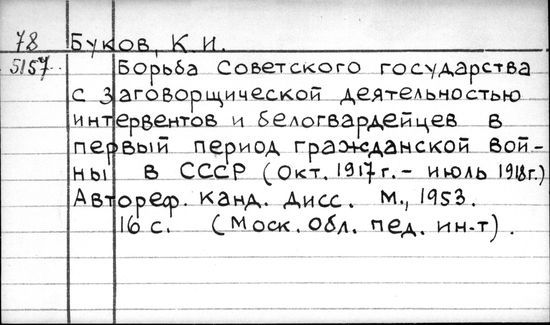 78 Буков, К. И.
5157 Борьба Советского государства
с заговорщической деятельностью
интервентов и белогвардейцев в
первый период гражданской вой-
ны в СССР (окт. 1917г. - июль 1918г.)
Автореф. канд. дисс. М., 1953.
16 с. (Моск. обл. пед. ин-т).